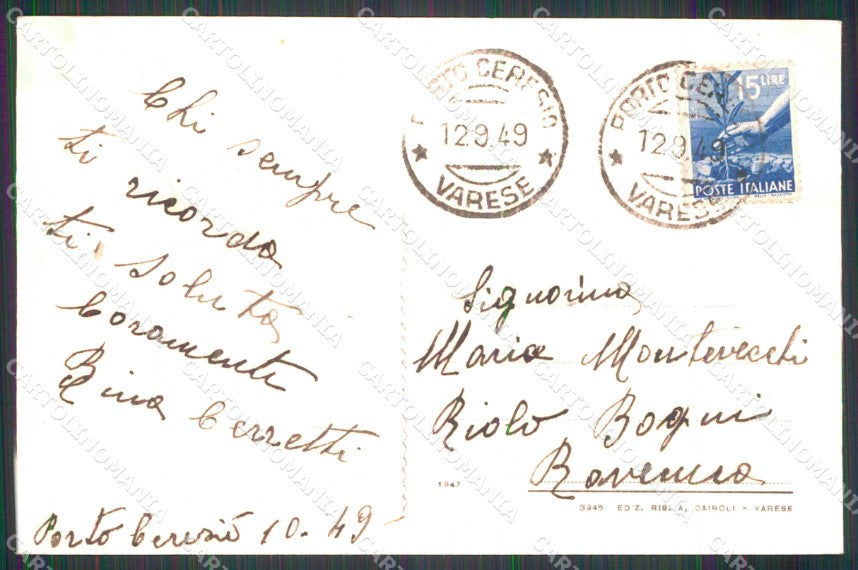 Chi sempre
ti ricorda
ti saluta
Caramente
Rina Cerretti
Porto Ceresio 10.49
PORTO CERESIO
12.9.49
VARESE
PORTO CER
12.9.49
VARESE
15 LIRE
POSTE ITALIANE
Signorina
Maria Montevecchi
Riolo Bagni
Ravenna
1947
3945 EDIZ. RIB. A. CAIROLI - VARESE
CARTOLINOMANIA